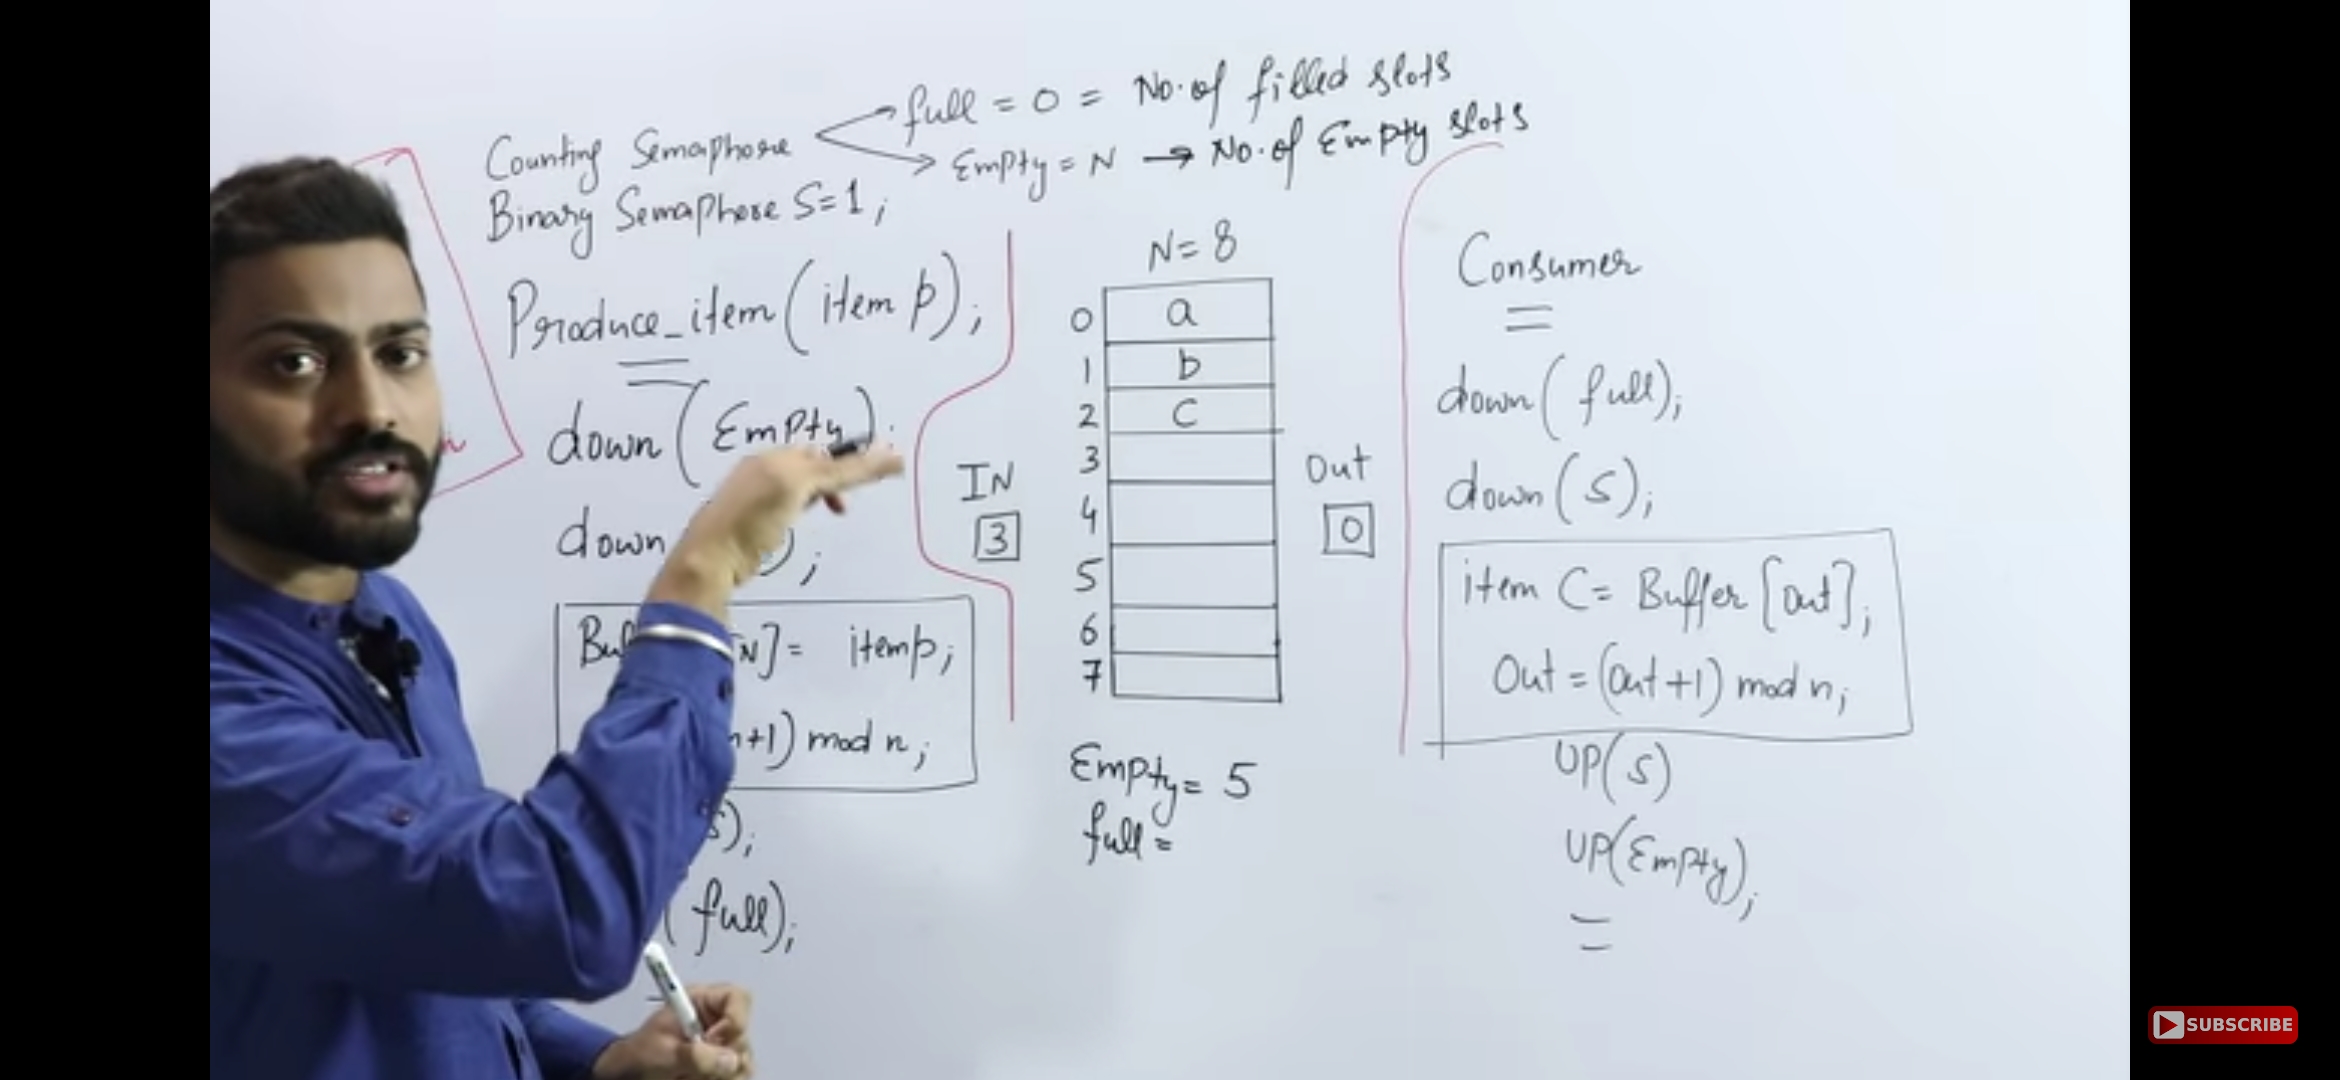 Counting Semaphore
full = 0 = No. of filled slots
Empty = N → No. of Empty slots
Binary Semaphore S=1;
Produce_item(item p);
down(Empty);
down
itemp;
+1) mod n;
(full);
N=8
0 a
1 b
2 C
3
4
5
6
7
IN
3
Out
0
Empty = 5
full =
Consumer
down(full);
down(S);
item C = Buffer[Out];
Out = (Out+1) mod n;
UP(S)
UP(Empty);
SUBSCRIBE